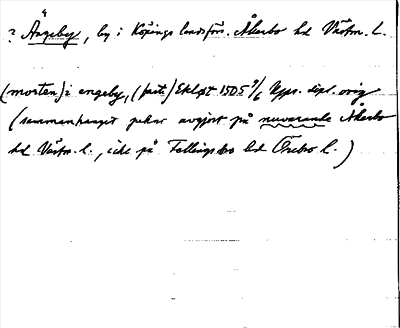 ? Ängeby, by i Köpings landsförs. Åkerbo hd Västm. l.
(morten) i engeby, (fast.) Ekløst 1505 9/6 Upps. dipl. orig
(sammanhanget pekar avgjort på nuvarande Åkerbo
hd Västm. l., icke på Fellingsbro hd Örebro l.)